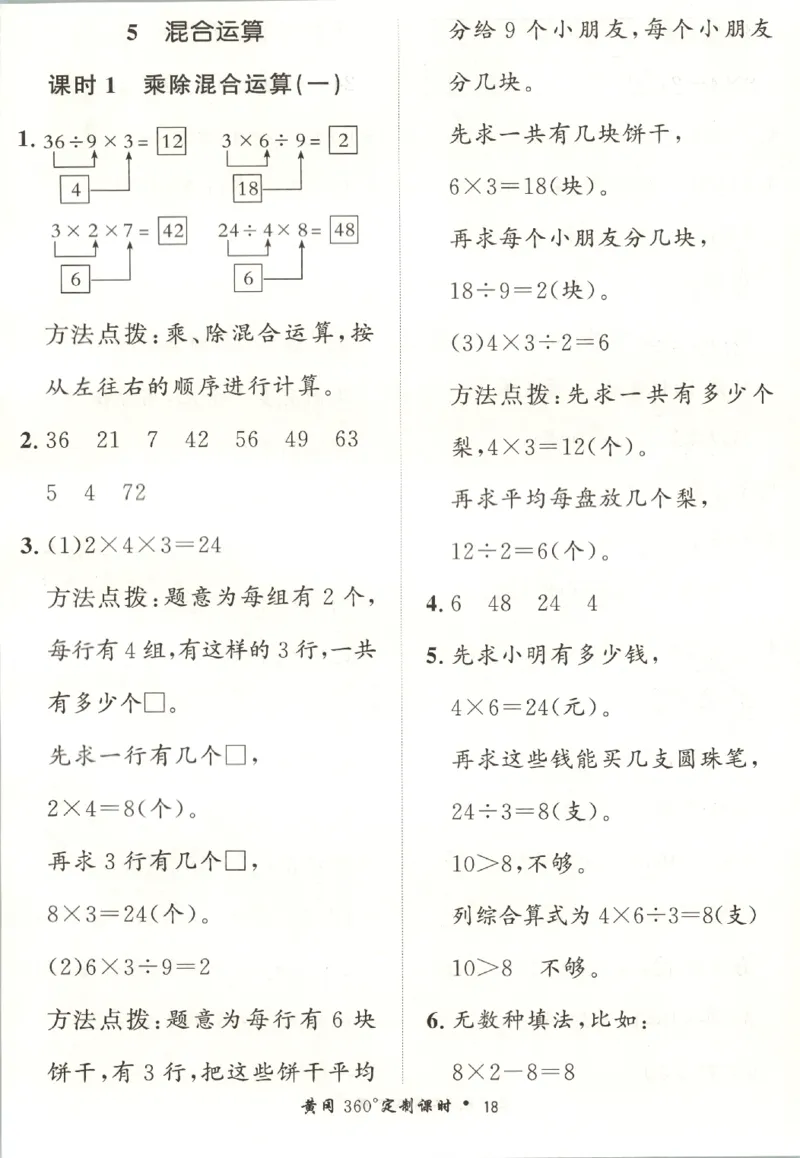 5 混合运算
课时1 乘除混合运算(一)
1. 36÷9×3=12 3×6÷9=2
4 18
3×2×7=42 24÷4×8=48
6 6
方法点拨:乘、除混合运算,按
从左往右的顺序进行计算。
2. 36 21 7 42 56 49 63
5 4 72
3. (1)2×4×3=24
方法点拨:题意为每组有 2 个,
每行有 4 组,有这样的 3 行,一共
有多少个□。
先求一行有几个□,
2×4=8(个)。
再求 3 行有几个□,
8×3=24(个)。
(2)6×3÷9=2
方法点拨:题意为每行有 6 块
饼干,有 3 行,把这些饼干平均
分给 9 个小朋友,每个小朋友
分几块。
先求一共有几块饼干,
6×3=18(块)。
再求每个小朋友分几块,
18÷9=2(块)。
(3)4×3÷2=6
方法点拨:先求一共有多少个
梨,4×3=12(个)。
再求平均每盘放几个梨,
12÷2=6(个)。
4. 6 48 24 4
5. 先求小明有多少钱,
4×6=24(元)。
再求这些钱能买几支圆珠笔,
24÷3=8(支)。
10>8,不够。
列综合算式为 4×6÷3=8(支)
10>8 不够。
6. 无数种填法,比如:
8×2-8=8
黄冈 360°定制课时 • 18